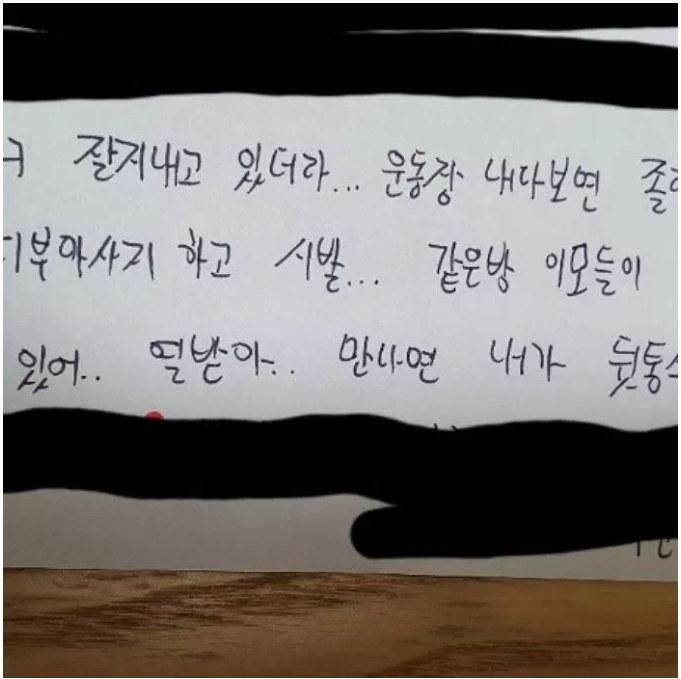 구 잘지내고 있더라... 운동장 내다보면
피부마사지 하고 시발... 같은방 이모들이
있어.. 열받아.. 만나면 내가